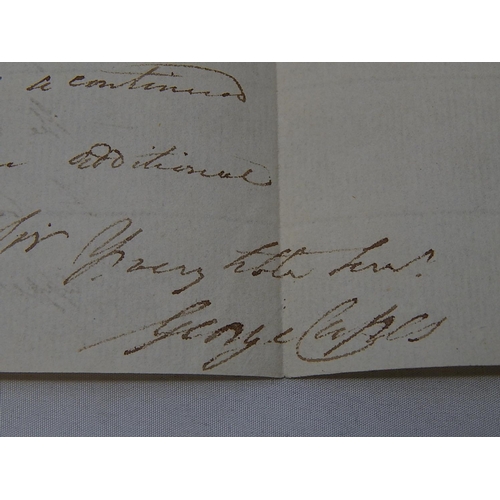 a continued
additional
Sir Yr. very hble Servt.
George